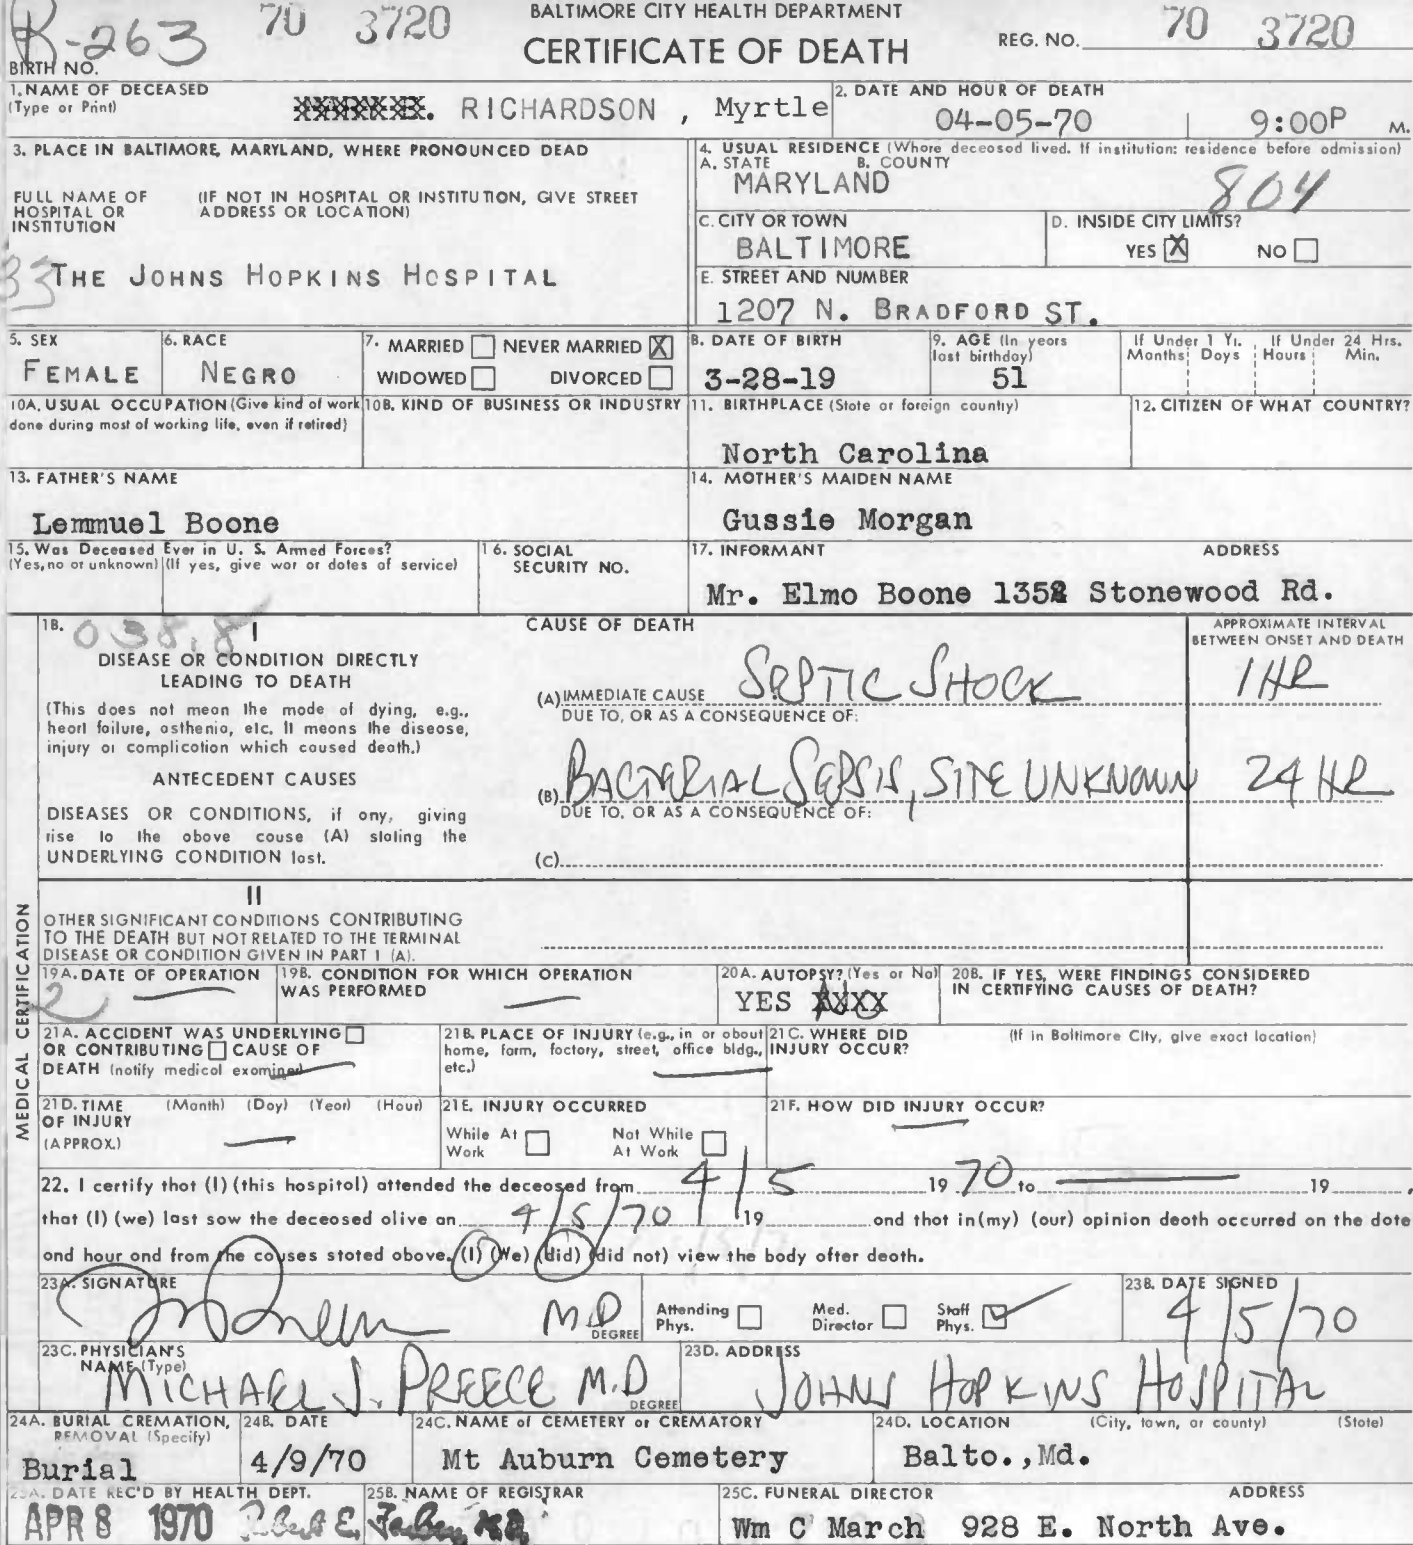 R-263 70 3720 BALTIMORE CITY HEALTH DEPARTMENT 70 3720
CERTIFICATE OF DEATH REG. NO.
BIRTH NO.
1. NAME OF DECEASED
(Type or Print) RICHARDSON, Myrtle
2. DATE AND HOUR OF DEATH
04-05-70 9:00P M.
3. PLACE IN BALTIMORE, MARYLAND, WHERE PRONOUNCED DEAD
FULL NAME OF HOSPITAL OR INSTITUTION (IF NOT IN HOSPITAL OR INSTITUTION, GIVE STREET ADDRESS OR LOCATION)
33 THE JOHNS HOPKINS HOSPITAL
4. USUAL RESIDENCE (Where deceased lived. If institution: residence before admission)
A. STATE B. COUNTY
MARYLAND 804
C. CITY OR TOWN
BALTIMORE
D. INSIDE CITY LIMITS?
YES X NO
E. STREET AND NUMBER
1207 N. BRADFORD ST.
5. SEX
FEMALE
6. RACE
NEGRO
7. MARRIED NEVER MARRIED X
WIDOWED DIVORCED
8. DATE OF BIRTH
3-28-19
9. AGE (In years last birthday)
51
If Under 1 Yr. If Under 24 Hrs.
Months Days Hours Min.
10A. USUAL OCCUPATION (Give kind of work done during most of working life, even if retired)
10B. KIND OF BUSINESS OR INDUSTRY
11. BIRTHPLACE (State or foreign country)
North Carolina
12. CITIZEN OF WHAT COUNTRY?
13. FATHER'S NAME
Lemmuel Boone
14. MOTHER'S MAIDEN NAME
Gussie Morgan
15. Was Deceased Ever in U. S. Armed Forces?
(Yes, no or unknown) (If yes, give war or dates of service)
16. SOCIAL SECURITY NO.
17. INFORMANT ADDRESS
Mr. Elmo Boone 1352 Stonewood Rd.
MEDICAL CERTIFICATION
18. 038.8 I
DISEASE OR CONDITION DIRECTLY
LEADING TO DEATH
(This does not mean the mode of dying, e.g.,
heart failure, asthenia, etc. It means the disease,
injury or complication which caused death.)
ANTECEDENT CAUSES
DISEASES OR CONDITIONS, if any, giving
rise to the above cause (A) stating the
UNDERLYING CONDITION last.
CAUSE OF DEATH
APPROXIMATE INTERVAL
BETWEEN ONSET AND DEATH
(A) IMMEDIATE CAUSE SEPTIC SHOCK 1 HR
DUE TO, OR AS A CONSEQUENCE OF:
(B) BACTERIAL SEPSIS, SITE UNKNOWN 24 HR
DUE TO, OR AS A CONSEQUENCE OF:
(C)
II
OTHER SIGNIFICANT CONDITIONS CONTRIBUTING
TO THE DEATH BUT NOT RELATED TO THE TERMINAL
DISEASE OR CONDITION GIVEN IN PART I (A).
19A. DATE OF OPERATION
2
19B. CONDITION FOR WHICH OPERATION
WAS PERFORMED
20A. AUTOPSY? (Yes or No)
YES
20B. IF YES, WERE FINDINGS CONSIDERED
IN CERTIFYING CAUSES OF DEATH?
21A. ACCIDENT WAS UNDERLYING
OR CONTRIBUTING CAUSE OF
DEATH (notify medical examiner)
21B. PLACE OF INJURY (e.g., in or about
home, farm, factory, street, office bldg.,
etc.)
21C. WHERE DID INJURY OCCUR? (If in Baltimore City, give exact location)
21D. TIME OF INJURY (APPROX.) (Month) (Day) (Year) (Hour)
21E. INJURY OCCURRED
While At Work Not While At Work
21F. HOW DID INJURY OCCUR?
22. I certify that (I) (this hospital) attended the deceased from 4/5 1970 to 19,
that (I) (we) last saw the deceased alive on 4/5/70 19 and that in (my) (our) opinion death occurred on the date
and hour and from the causes stated above. (I) (We) (did) (did not) view the body after death.
23A. SIGNATURE
MD DEGREE
Attending Phys. Med. Director Staff Phys.
23B. DATE SIGNED
4/5/70
23C. PHYSICIAN'S NAME (Type)
MICHAEL J. PREECE M.D. DEGREE
23D. ADDRESS
JOHNS HOPKINS HOSPITAL
24A. BURIAL CREMATION, REMOVAL (Specify)
Burial
24B. DATE
4/9/70
24C. NAME of CEMETERY or CREMATORY
Mt Auburn Cemetery
24D. LOCATION (City, town, or county) (State)
Balto., Md.
25A. DATE REC'D BY HEALTH DEPT.
APR 8 1970
25B. NAME OF REGISTRAR
Robert E. Farber, M.D.
25C. FUNERAL DIRECTOR ADDRESS
Wm C March 928 E. North Ave.